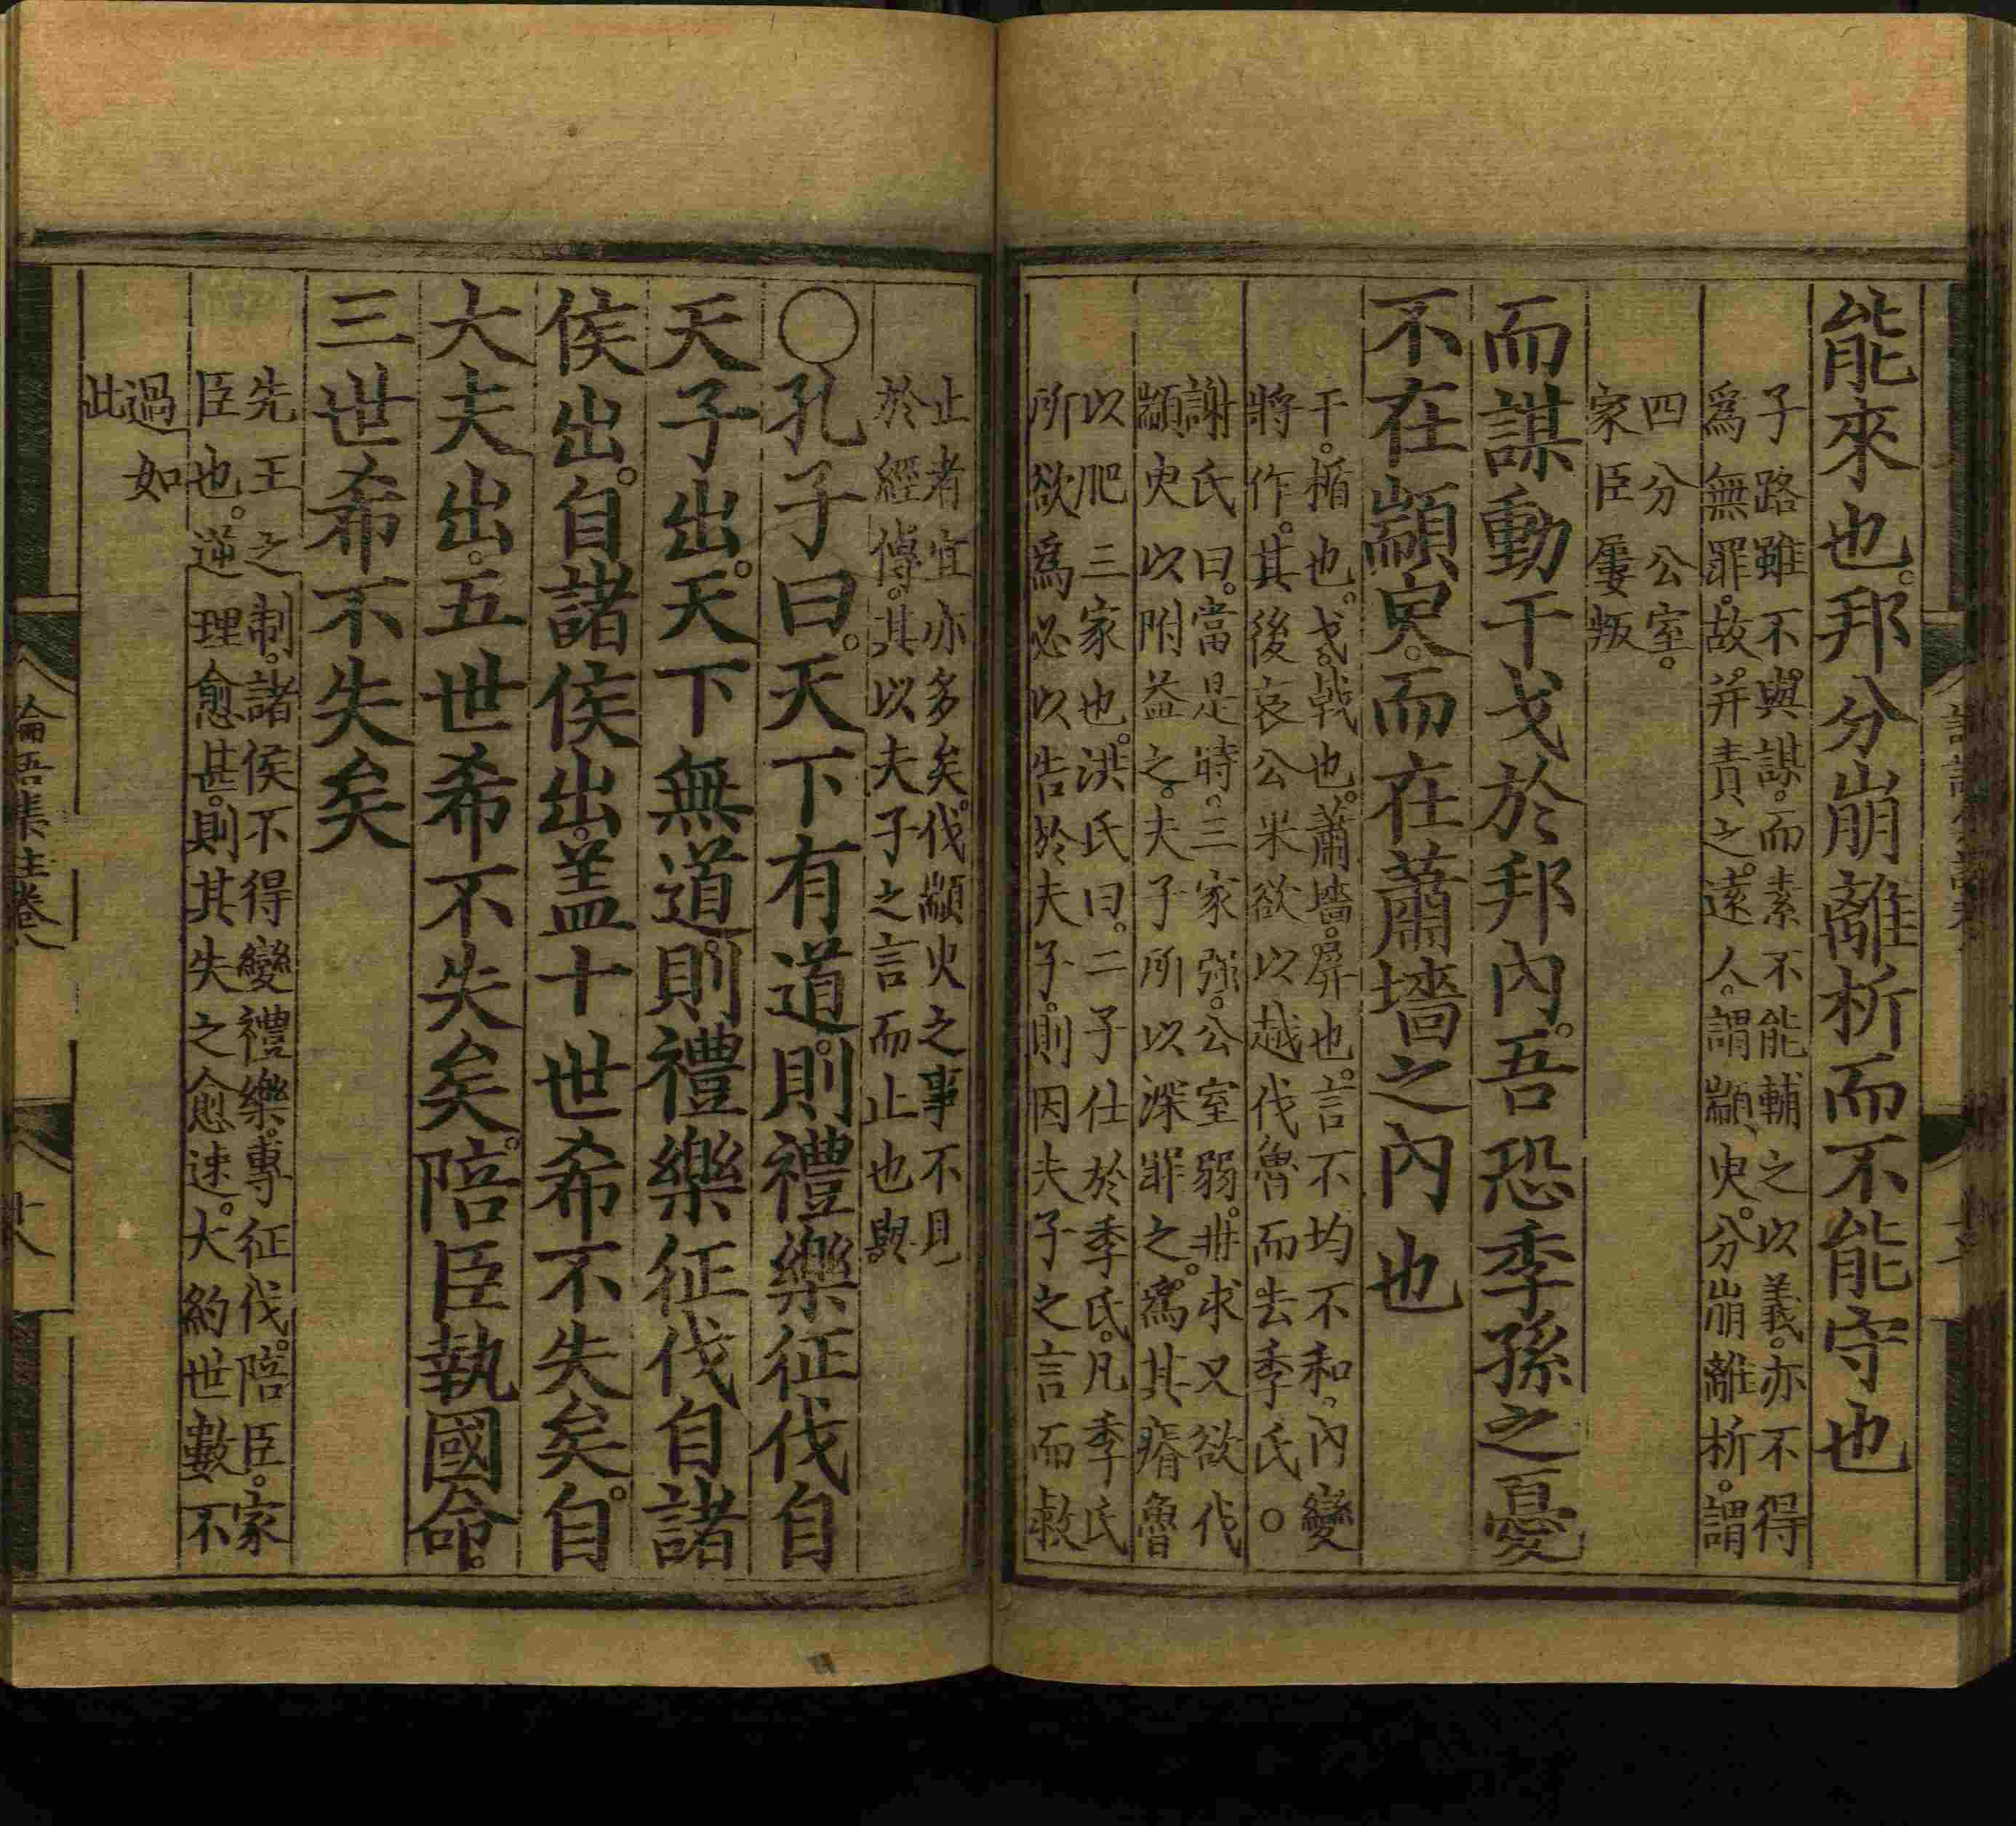 能來也。邦分崩離析而不能守也
子路雖不與謀。而素不能輔之以義。亦不得
爲無罪。故幷責之。遠人。謂顓臾。分崩離析。謂
四分公室。
家臣屢叛
而謀動干戈於邦內。吾恐季孫之憂
不在顓臾。而在蕭墻之內也
干。楯也。戈。戟也。蕭墻。屛也。言不均不和。內變
將作。其後哀公果欲以越伐魯而去季氏。○
謝氏曰。當是時。三家强。公室弱。冉求又欲伐
顓臾以附益之。夫子所以深罪之。爲其瘠魯
以肥三家也。洪氏曰。二子仕於季氏。凡季氏
所欲爲必以告於夫子。則因夫子之言而救
止者宜亦多矣。伐顓臾之事不見
於經傳。其以夫子之言而止也與
○孔子曰。天下有道。則禮樂征伐自
天子出。天下無道。則禮樂征伐自諸
侯出。自諸侯出。盖十世希不失矣。自
大夫出。五世希不失矣。陪臣執國命。
三世希不失矣
先王之制。諸侯不得變禮樂。專征伐。陪臣。家
臣也。逆理愈甚。則其失之愈速。大約世數不
過如
此
論語集註卷八
十八